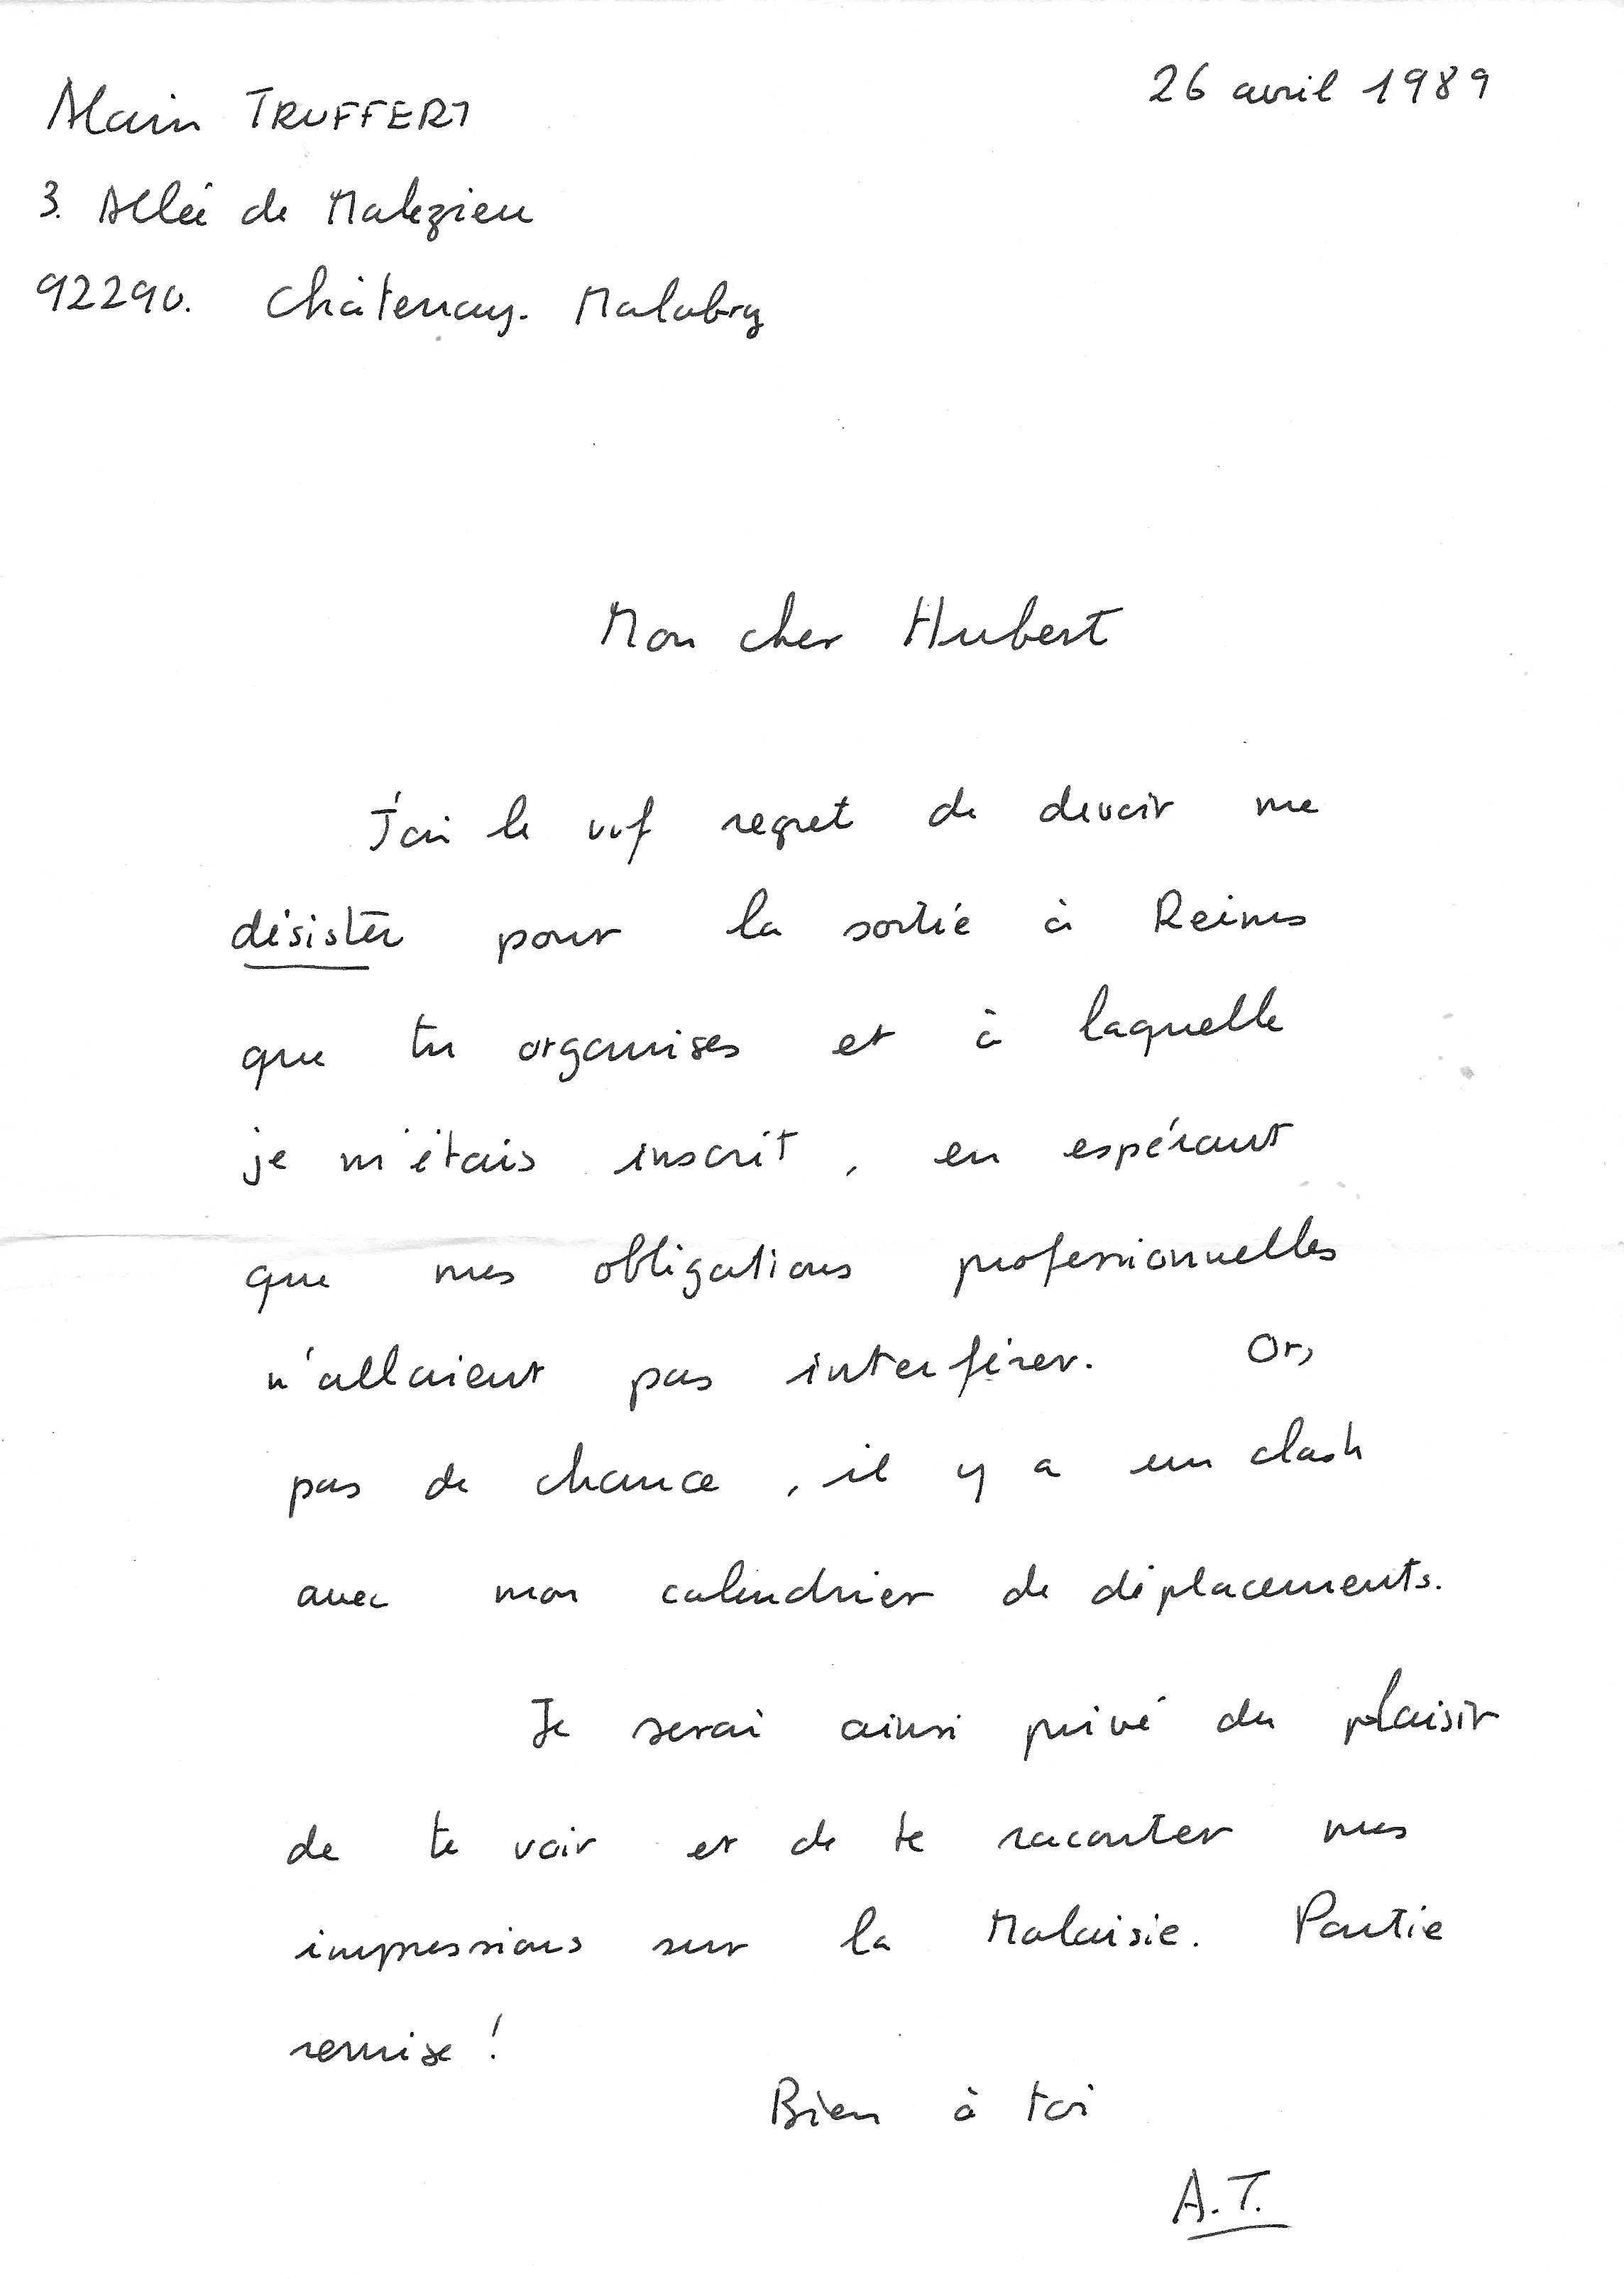 Alain TRUFFERT
26 avril 1989
3. Allée de Malezieu
92290. Châtenay. Malabry
Mon cher Hubert
J'ai le vif regret de devoir me
désister pour la sortie à Reims
que tu organises et à laquelle
je m'étais inscrit, en espérant
que mes obligations professionnelles
n'allaient pas interférer. Or,
pas de chance, il y a un clash
avec mon calendrier de déplacements.
Je serai ainsi privé du plaisir
de te voir et de te raconter mes
impressions sur la Malaisie. Partie
remise !
Bien à toi
A.T.